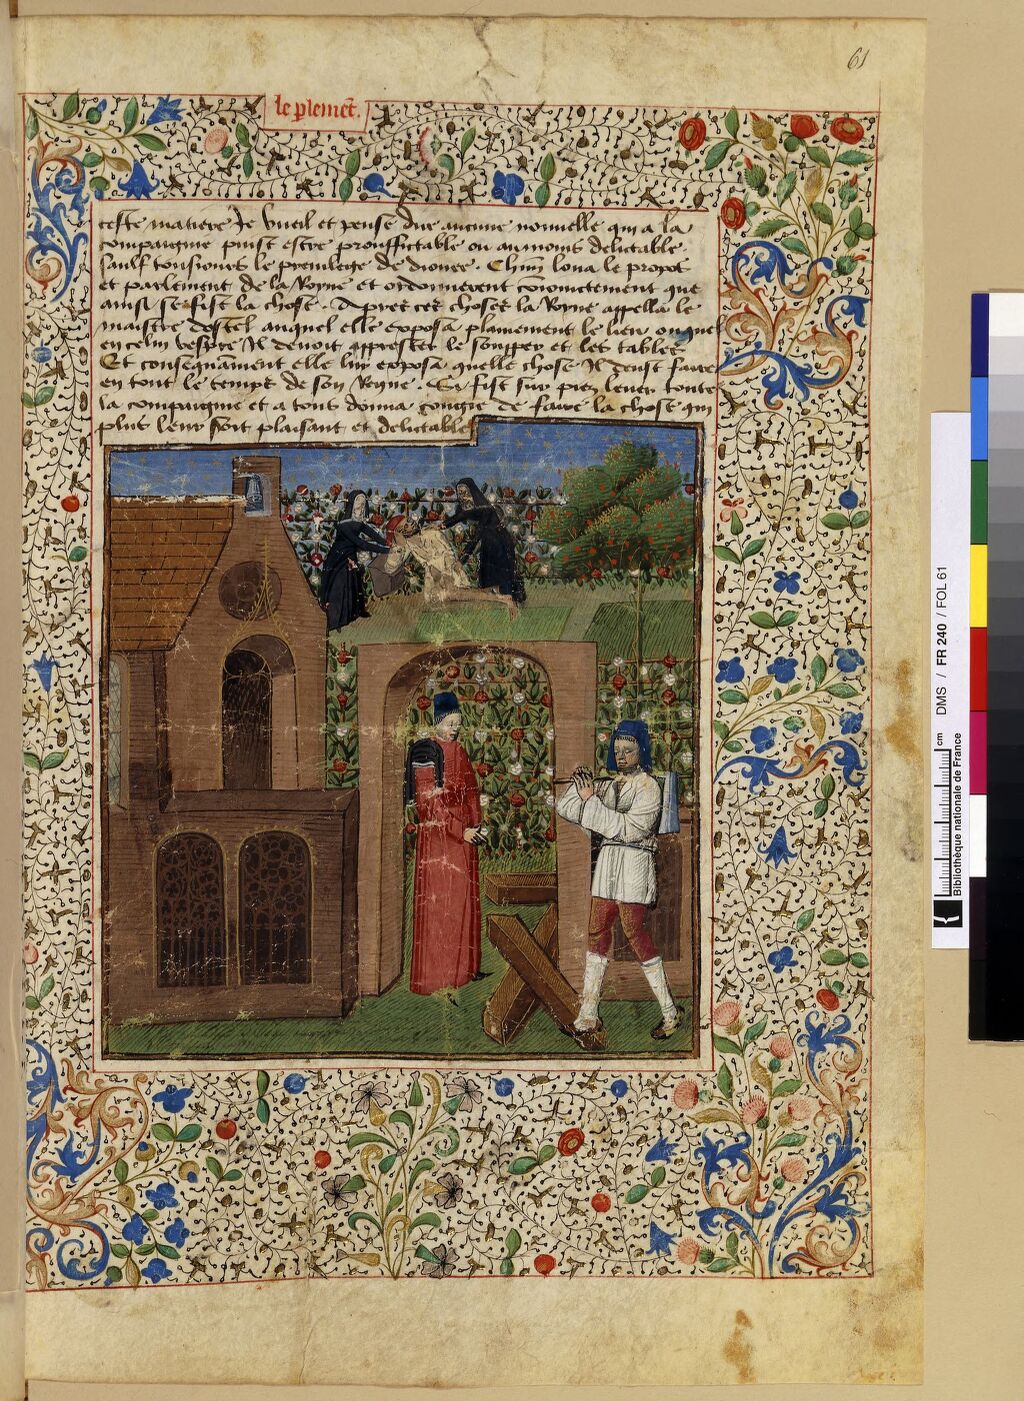 61
le plemēt.
ceste matiere Je vueil et pense dire aucune nouuelle qui a la
compaignie puist estre prouffictable ou aumoins delictable.
saulf tousiours le preuilege de dionee. Chũn loua le propos
et parlement de la Royne et ordonnerent cōiointement que
ainsi se fist la chose. Apres ces choses la Royne appella le
maistre dostel auquel elle exposa plainement le lieu ouquel
en celui vespre Il deuoit apprester le soupper et les tables
Et consequāment elle luy exposa quelle chose Il deust faire
en tout le temps de son Regne. Et fist sur piez leuer toute
la compaignie et a tous donna congie de faire la chose qui
plus leur soit plaisant et delictable
DMS / FR 240 / FOL 61
cm
Bibliothèque nationale de France